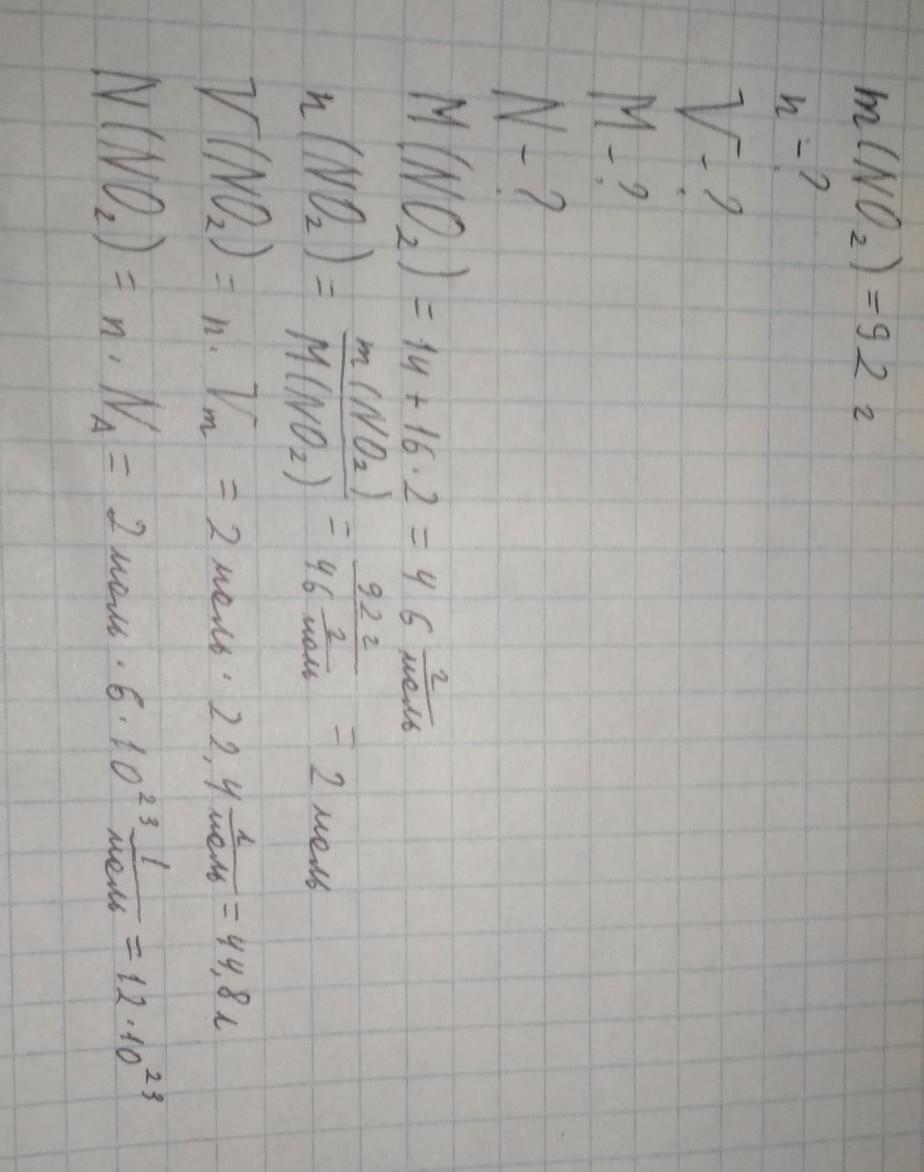 m(NO₂) = 92 г
n - ?
V - ?
M - ?
N - ?
M(NO₂) = 14 + 16 · 2 = 46 г/моль
n(NO₂) = m(NO₂)/M(NO₂) = 92 г/46 г/моль = 2 моль
V(NO₂) = n · Vₘ = 2 моль · 22,4 л/моль = 44,8 л
N(NO₂) = n · N_A = 2 моль · 6 · 10²³ 1/моль = 12 · 10²³